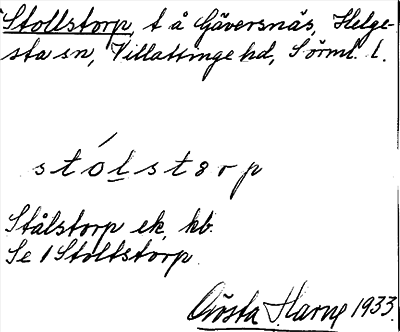 Stollstorp, t å Gäversnäs, Helge-
sta sn, Villåttinge hd, Sörml. l.
stólstorp
Stålstorp ek. kb.
Se 1 Stolltstorp.
Gösta Harne 1933.